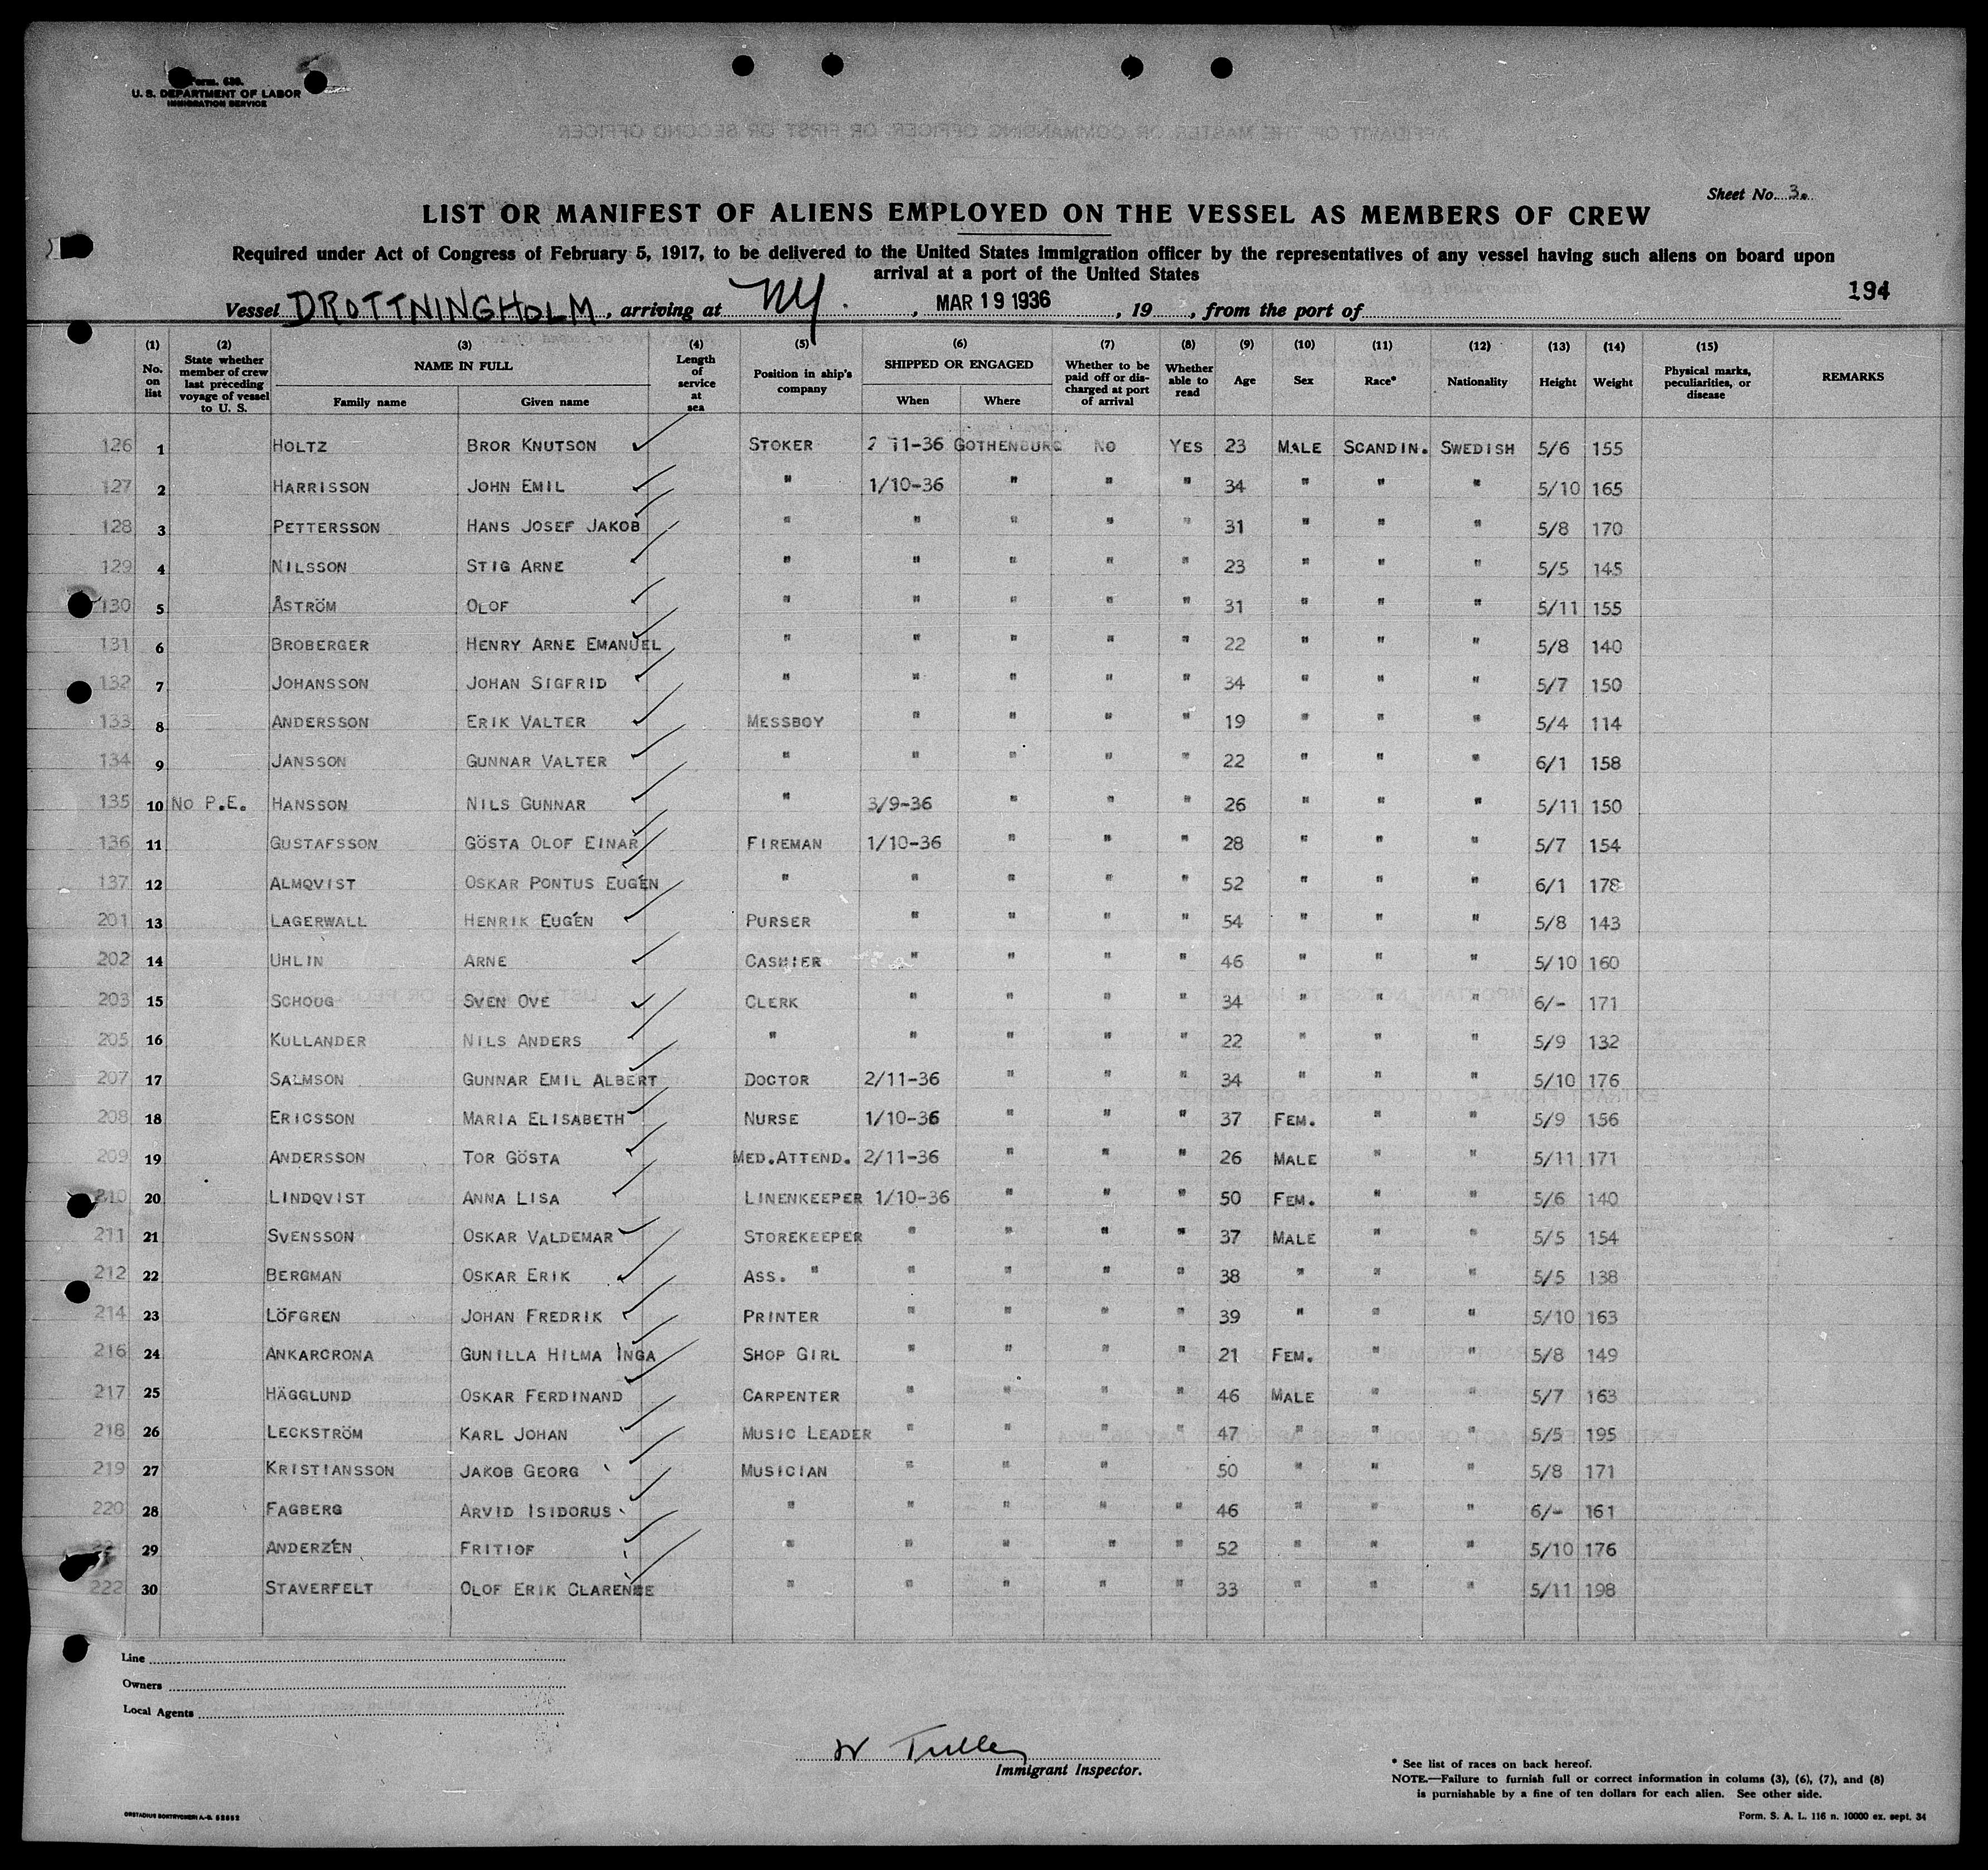 Form. 680.
U. S. DEPARTMENT OF LABOR
IMMIGRATION SERVICE
Sheet No. 3.
LIST OR MANIFEST OF ALIENS EMPLOYED ON THE VESSEL AS MEMBERS OF CREW
Required under Act of Congress of February 5, 1917, to be delivered to the United States immigration officer by the representatives of any vessel having such aliens on board upon
arrival at a port of the United States
194
Vessel DROTTNINGHOLM, arriving at NY., MAR 19 1936, 19 , from the port of
(1) No. on list (2) State whether member of crew last preceding voyage of vessel to U. S. (3) NAME IN FULL Family name Given name (4) Length of service at sea (5) Position in ship's company (6) SHIPPED OR ENGAGED When Where (7) Whether to be paid off or discharged at port of arrival (8) Whether able to read (9) Age (10) Sex (11) Race* (12) Nationality (13) Height (14) Weight (15) Physical marks, peculiarities, or disease REMARKS
126 1 HOLTZ BROR KNUTSON STOKER 2 11-36 GOTHENBURG NO YES 23 MALE SCANDIN. SWEDISH 5/6 155
127 2 HARRISSON JOHN EMIL " 1/10-36 " " " 34 " " " 5/10 165
128 3 PETTERSSON HANS JOSEF JAKOB " " " " " 31 " " " 5/8 170
129 4 NILSSON STIG ARNE " " " " " 23 " " " 5/5 145
130 5 ÅSTRÖM OLOF " " " " " 31 " " " 5/11 155
131 6 BROBERGER HENRY ARNE EMANUEL " " " " " 22 " " " 5/8 140
132 7 JOHANSSON JOHAN SIGFRID " " " " " 34 " " " 5/7 150
133 8 ANDERSSON ERIK VALTER MESSBOY " " " " 19 " " " 5/4 114
134 9 JANSSON GUNNAR VALTER " " " " " 22 " " " 6/1 158
135 10 NO P.E. HANSSON NILS GUNNAR " 3/9-36 " " " 26 " " " 5/11 150
136 11 GUSTAFSSON GÖSTA OLOF EINAR FIREMAN 1/10-36 " " " 28 " " " 5/7 154
137 12 ALMQVIST OSKAR PONTUS EUGÉN " " " " " 52 " " " 6/1 178
201 13 LAGERWALL HENRIK EUGÉN PURSER " " " " 54 " " " 5/8 143
202 14 UHLIN ARNE CASHIER " " " " 46 " " " 5/10 160
203 15 SCHOUG SVEN OVE CLERK " " " " 34 " " " 6/- 171
205 16 KULLANDER NILS ANDERS " " " " " 22 " " " 5/9 132
207 17 SALMSON GUNNAR EMIL ALBERT DOCTOR 2/11-36 " " " 34 " " " 5/10 176
208 18 ERICSSON MARIA ELISABETH NURSE 1/10-36 " " " 37 FEM. " " 5/9 156
209 19 ANDERSSON TOR GÖSTA MED.ATTEND. 2/11-36 " " " 26 MALE " " 5/11 171
210 20 LINDQVIST ANNA LISA LINENKEEPER 1/10-36 " " " 50 FEM. " " 5/6 140
211 21 SVENSSON OSKAR VALDEMAR STOREKEEPER " " " " 37 MALE " " 5/5 154
212 22 BERGMAN OSKAR ERIK ASS. " " " " " 38 " " " 5/5 138
214 23 LÖFGREN JOHAN FREDRIK PRINTER " " " " 39 " " " 5/10 163
216 24 ANKARCRONA GUNILLA HILMA INGA SHOP GIRL " " " " 21 FEM. " " 5/8 149
217 25 HÄGGLUND OSKAR FERDINAND CARPENTER " " " " 46 MALE " " 5/7 163
218 26 LECKSTRÖM KARL JOHAN MUSIC LEADER " " " " 47 " " " 5/5 195
219 27 KRISTIANSSON JAKOB GEORG MUSICIAN " " " 50 " " " 5/8 171
220 28 FAGBERG ARVID ISIDORUS " " " " " 46 " " " 6/- 161
29 ANDERZÉN FRITIOF " " " " " 52 " " " 5/10 176
222 30 STAVERFELT OLOF ERIK CLARENCE " " " " " 33 " " " 5/11 198
Line
Owners
Local Agents
W Tulley
Immigrant Inspector.
* See list of races on back hereof.
NOTE.—Failure to furnish full or correct information in colums (3), (6), (7), and (8)
is purnishable by a fine of ten dollars for each alien. See other side.
Form. S. A. L. 116 n. 10000 ex. sept. 34